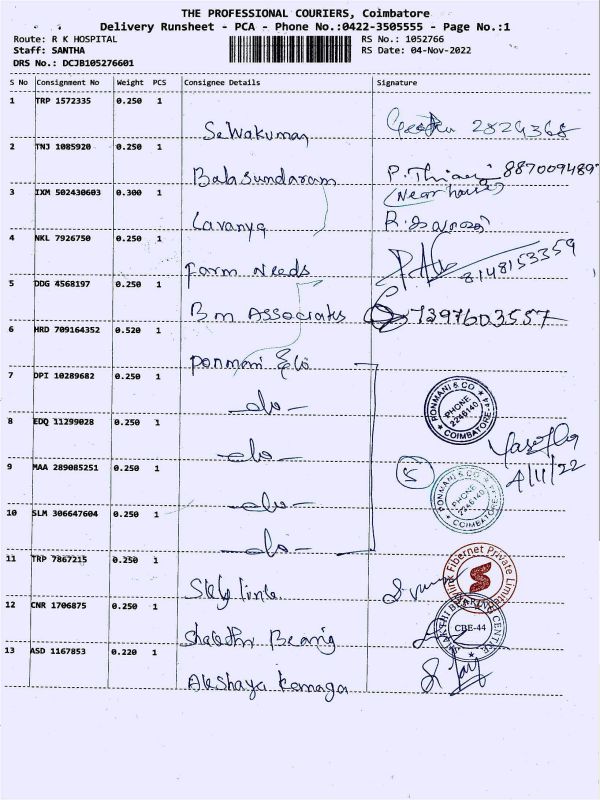 THE PROFESSIONAL COURIERS, Coimbatore
Delivery Runsheet - PCA - Phone No.:0422-3505555 - Page No.:1
Route: R K HOSPITAL
RS No.: 1052766
Staff: SANTHA
RS Date: 04-Nov-2022
DRS No.: DCJB105276601
S No Consignment No Weight PCS Consignee Details Signature
1 TRP 1572335 0.250 1
Selvakumar 2824368
2 TNJ 1085920 0.250 1
Balasundaram P. 887009489
(Near house)
3 IXM 502430603 0.300 1
Lavanya R.
4 NKL 7926750 0.250 1
Farm Needs 8148153359
5 DDG 4568197 0.250 1
Bm Associates 7397603557
6 HRD 709164352 0.520 1
Ponmani & Co
7 DPI 10289682 0.250 1
-do-
PONMANI & CO
PHONE
2246140
COIMBATORE-44
8 EDQ 11299028 0.250 1
-do-
4/11/22
9 MAA 289085251 0.250 1
-do-
5
PONMANI & CO
PHONE
2246140
COIMBATORE
10 SLM 306647604 0.250 1
-do-
11 TRP 7867215 0.250 1
Skylink
Fibernet Private Limited
S
12 CNR 1706875 0.250 1
Shakthi Bearing
BEARING CENTRE
CBE-44
13 ASD 1167853 0.220 1
Akshaya